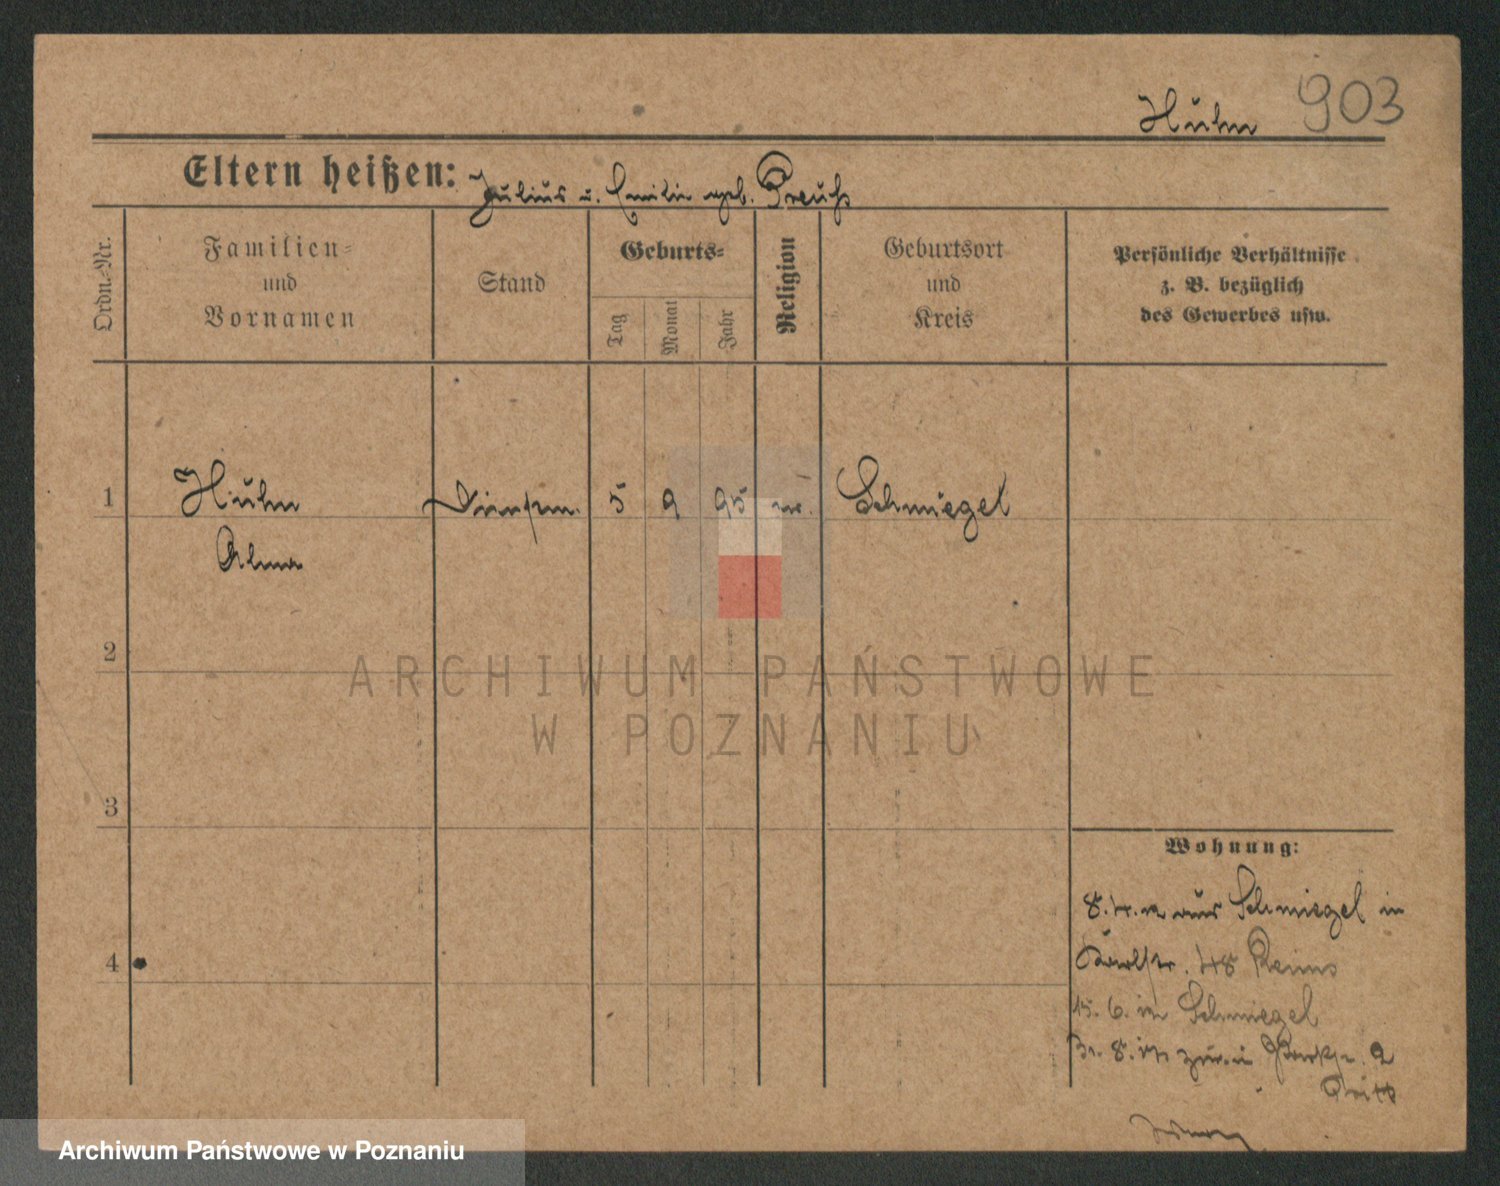 Huhn 903
Eltern heißen: Julius u. Emilie geb. Preuß
Ordn.-Nr.
Familien-
und
Vornamen
Stand
Geburts-
Tag
Monat
Jahr
Religion
Geburtsort
und
Kreis
Persönliche Verhältnisse
z. B. bezüglich
des Gewerbes usw.
1 Huhn 5 9 95 Schmiegel
Alma
2
ARCHIWUM PAŃSTWOWE
W POZNANIU
3
Wohnung:
8.4. aus Schmiegel in
4
48
15. 6. in Schmiegel
8. 2
Archiwum Państwowe w Poznaniu